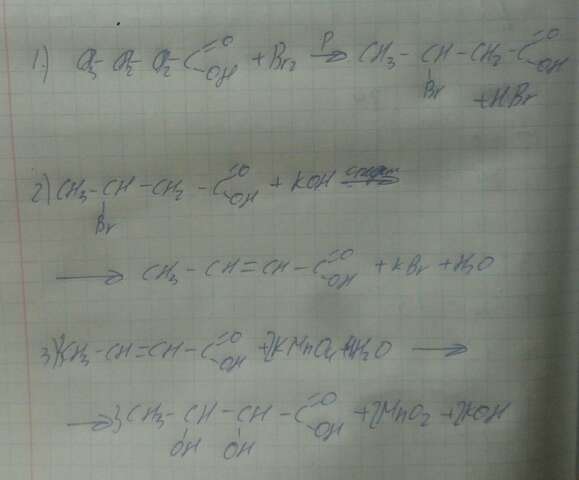 1.) CH3-CH2-CH2-C(=O)OH + Br2 —P→ CH3-CH-CH2-C(=O)OH
Br
+HBr
2) CH3-CH-CH2-C(=O)OH + KOH
Br
⟶ CH3-CH=CH-C(=O)OH + KBr + H2O
3) 3CH3-CH=CH-C(=O)OH + 2KMnO4 + 4H2O ⟶
⟶ 3CH3-CH-CH-C(=O)OH + 2MnO2 + 2KOH
OH OH